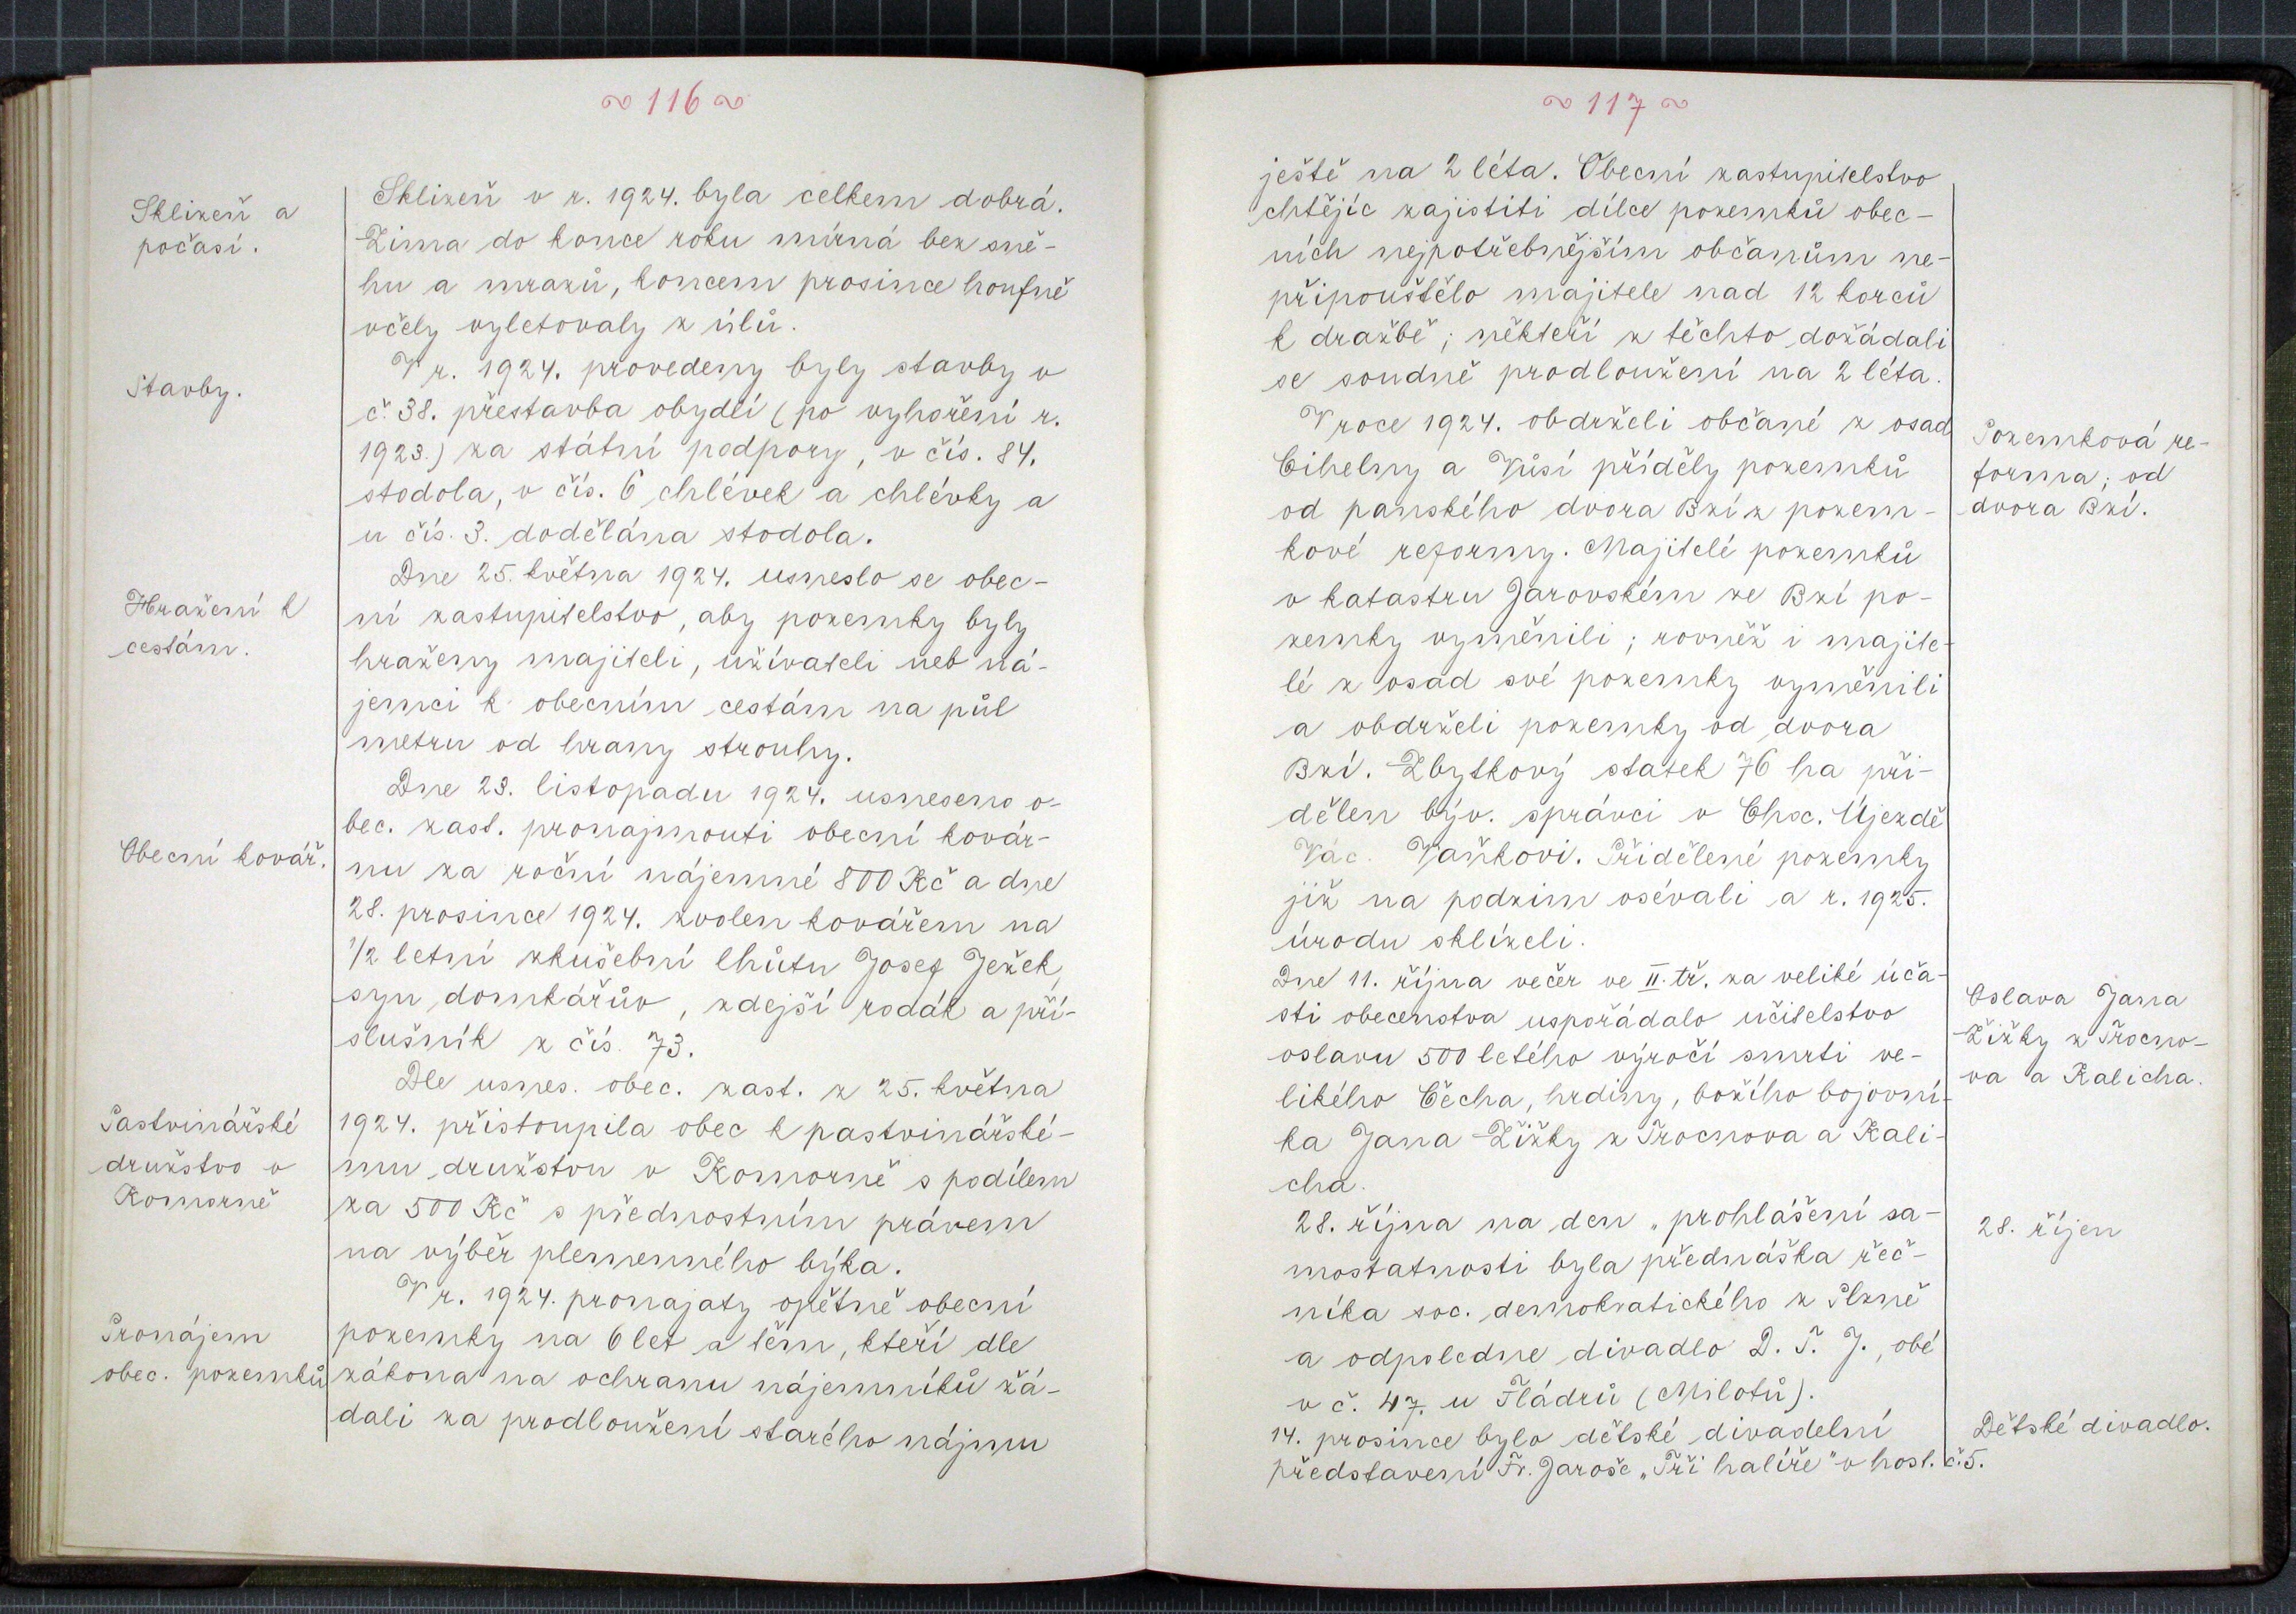 ~ 116 ~
Sklizeň a
počasí.
Sklizeň v r. 1924. byla celkem dobrá.
Zima do konce roku mírná bez sně-
hu a mrazů, koncem prosince houfně
včely vyletovaly z úlů.
Stavby.
V r. 1924. provedeny byly stavby v
č. 38. přestavba obydlí (po vyhoření r.
1923.) za státní podpory, v čís. 84.
stodola, v čís. 6 chlévek a chlévky a
u čís. 3. dodělána stodola.
Hražení k
cestám.
Dne 25. května 1924. usneslo se obec-
ní zastupitelstvo, aby pozemky byly
hraženy majiteli, užívateli neb ná-
jemci k obecním cestám na půl
metru od hrany strouhy.
Obecní kovář.
Dne 23. listopadu 1924. usneseno o-
bec. zast. pronajmouti obecní kovár-
nu za roční nájemné 800 Kč a dne
28. prosince 1924. zvolen kovářem na
1/2 letní zkušební lhůtu Josef Ježek,
syn domkářův, zdejší rodák a pří-
slušník z čís. 73.
Pastvinářské
družstvo v
Komorně
Dle usnes. obec. zast. z 25. května
1924. přistoupila obec k pastvinářské-
mu družstvu v Komorně s podílem
za 500 Kč s přednostním právem
na výběr plemenného býka.
Pronájem
obec. pozemků
V r. 1924. pronajaty opětně obecní
pozemky na 6 let a těm, kteří dle
zákona na ochranu nájemníků žá-
dali za prodloužení starého nájmu
~ 117 ~
ještě na 2 léta. Obecní zastupitelstvo
chtějíc zajistiti dílce pozemků obec-
ních nejpotřebnějším občanům ne-
připouštělo majitele nad 12 korců
k dražbě; někteří z těchto dožádali
se soudně prodloužení na 2 léta.
Pozemková re-
forma; od
dvora Bzí.
V roce 1924. obdrželi občané z osad
Cihelny a Vůsí příděly pozemků
od panského dvora Bzí z pozem-
kové reformy. Majitelé pozemků
v katastru Jarovském ze Bzí po-
zemky vyměnili; rovněž i majite-
lé z osad své pozemky vyměnili
a obdrželi pozemky od dvora
Bzí. Zbytkový statek 76 ha při-
dělen býv. správci v Choc. Újezdě
Vác. Vaňkovi. Přidělené pozemky
již na podzim osévali a r. 1925.
úrodu sklízeli.
Oslava Jana
Žižky z Trocno-
va a Kalicha.
Dne 11. října večer ve II. tř. za veliké úča-
sti obecenstva uspořádalo učitelstvo
oslavu 500 letého výročí smrti ve-
likého Čecha, hrdiny, božího bojovní-
ka Jana Žižky z Trocnova a Kali-
cha.
28. říjen
28. října na den „prohlášení sa-
mostatnosti byla přednáška řeč-
níka soc. demokratického z Plzně
a odpoledne divadlo D. T. J., obé
v č. 47. u Fládrů (Milotů).
Dětské divadlo.
14. prosince bylo dětské divadelní
představení Fr. Jaroše „Tři halíře" v host. č. 5.